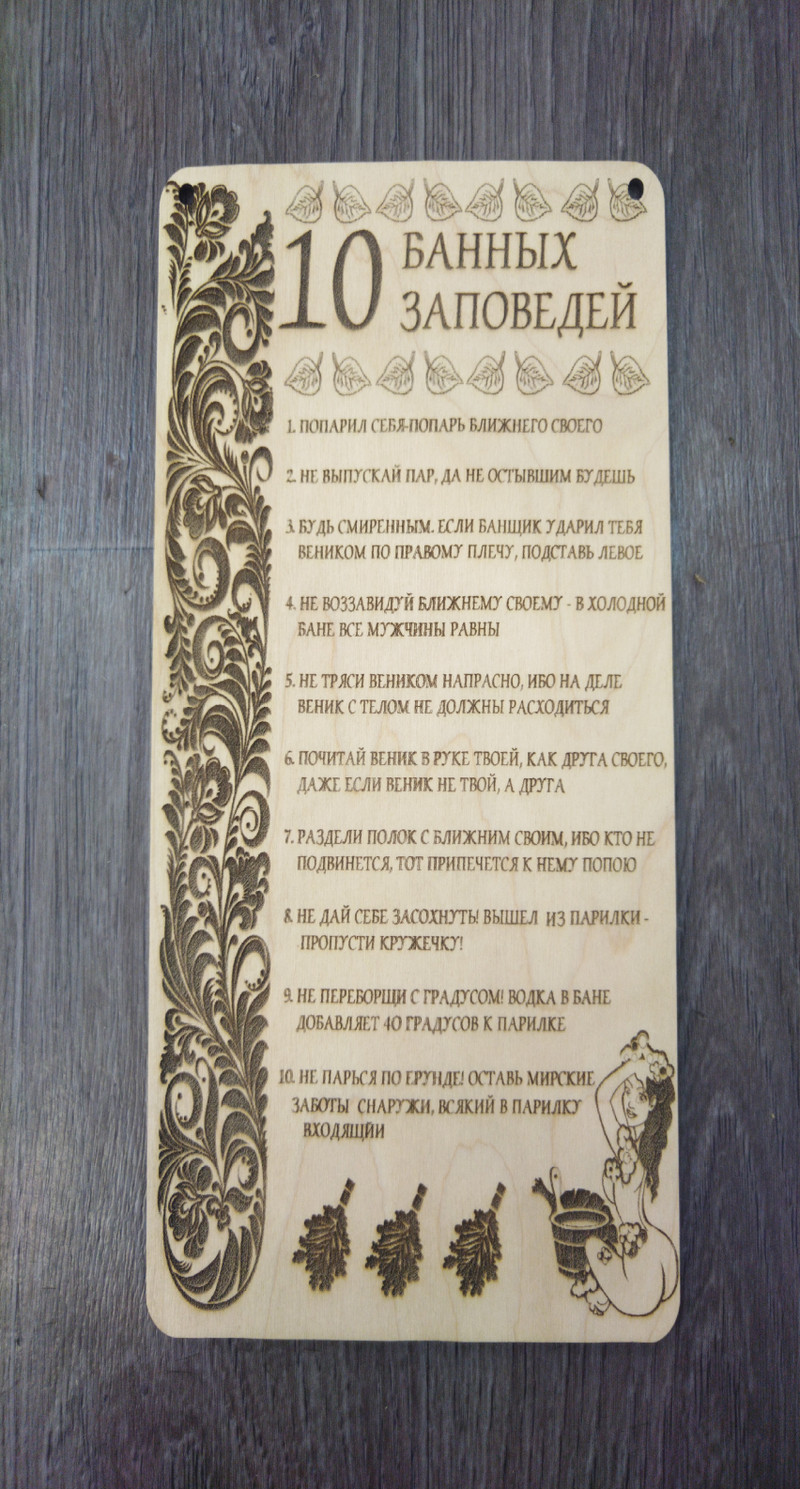 10 БАННЫХ
ЗАПОВЕДЕЙ
1. ПОПАРИЛ СЕБЯ-ПОПАРЬ БЛИЖНЕГО СВОЕГО
2. НЕ ВЫПУСКАЙ ПАР, ДА НЕ ОСТЫВШИМ БУДЕШЬ
3. БУДЬ СМИРЕННЫМ. ЕСЛИ БАНЩИК УДАРИЛ ТЕБЯ
ВЕНИКОМ ПО ПРАВОМУ ПЛЕЧУ, ПОДСТАВЬ ЛЕВОЕ
4. НЕ ВОЗЗАВИДУЙ БЛИЖНЕМУ СВОЕМУ - В ХОЛОДНОЙ
БАНЕ ВСЕ МУЖЧИНЫ РАВНЫ
5. НЕ ТРЯСИ ВЕНИКОМ НАПРАСНО, ИБО НА ДЕЛЕ
ВЕНИК С ТЕЛОМ НЕ ДОЛЖНЫ РАСХОДИТЬСЯ
6. ПОЧИТАЙ ВЕНИК В РУКЕ ТВОЕЙ, КАК ДРУГА СВОЕГО,
ДАЖЕ ЕСЛИ ВЕНИК НЕ ТВОЙ, А ДРУГА
7. РАЗДЕЛИ ПОЛОК С БЛИЖНИМ СВОИМ, ИБО КТО НЕ
ПОДВИНЕТСЯ, ТОТ ПРИПЕЧЕТСЯ К НЕМУ ПОПОЮ
8. НЕ ДАЙ СЕБЕ ЗАСОХНУТЬ! ВЫШЕЛ ИЗ ПАРИЛКИ -
ПРОПУСТИ КРУЖЕЧКУ!
9. НЕ ПЕРЕБОРЩИ С ГРАДУСОМ! ВОДКА В БАНЕ
ДОБАВЛЯЕТ 40 ГРАДУСОВ К ПАРИЛКЕ
10. НЕ ПАРЬСЯ ПО ЕРУНДЕ! ОСТАВЬ МИРСКИЕ
ЗАБОТЫ СНАРУЖИ, ВСЯКИЙ В ПАРИЛКУ
ВХОДЯЩИЙ